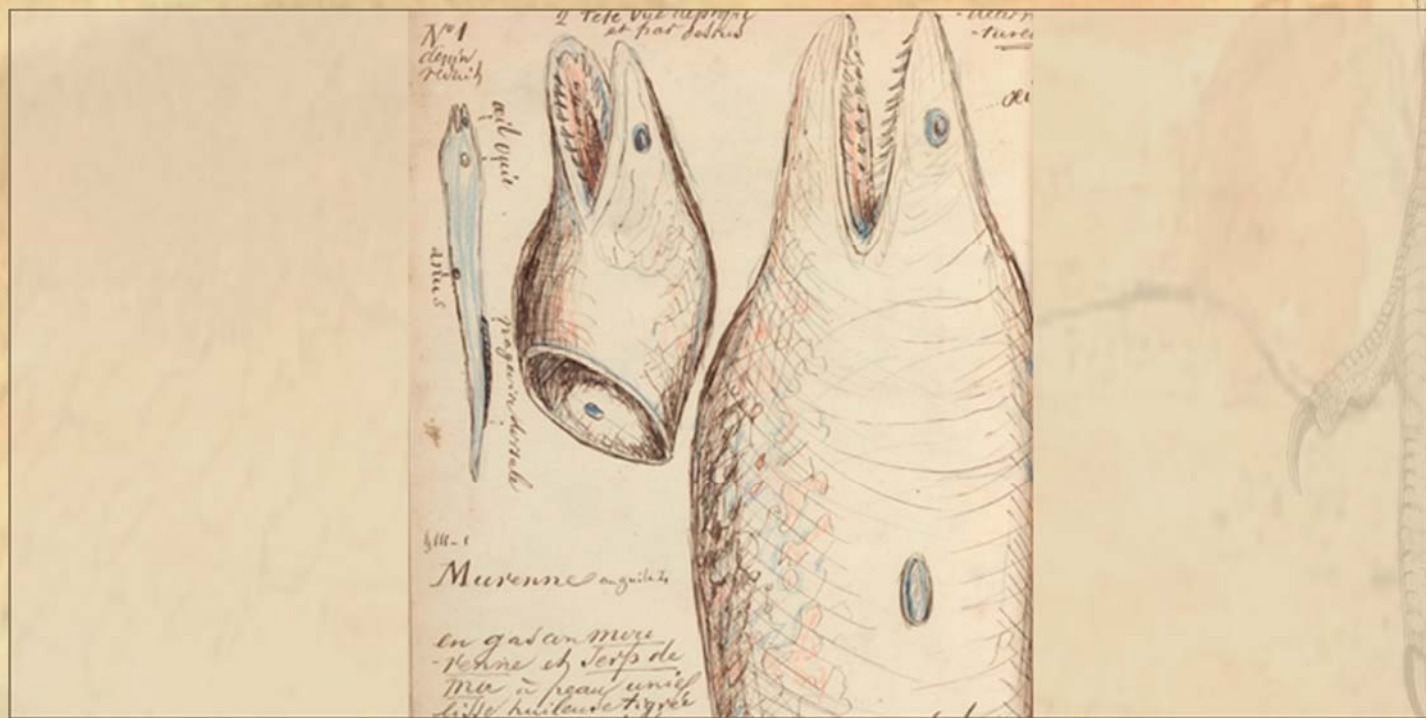 N° 1
dessin
réduit
2 Tete vue de profil
et par dessus
œil ouie
anus
nageoire dorsale
Murenne anguille
en gascon mou
-renne et Serp de
mer à peau unie
lisse huileuse tigrée